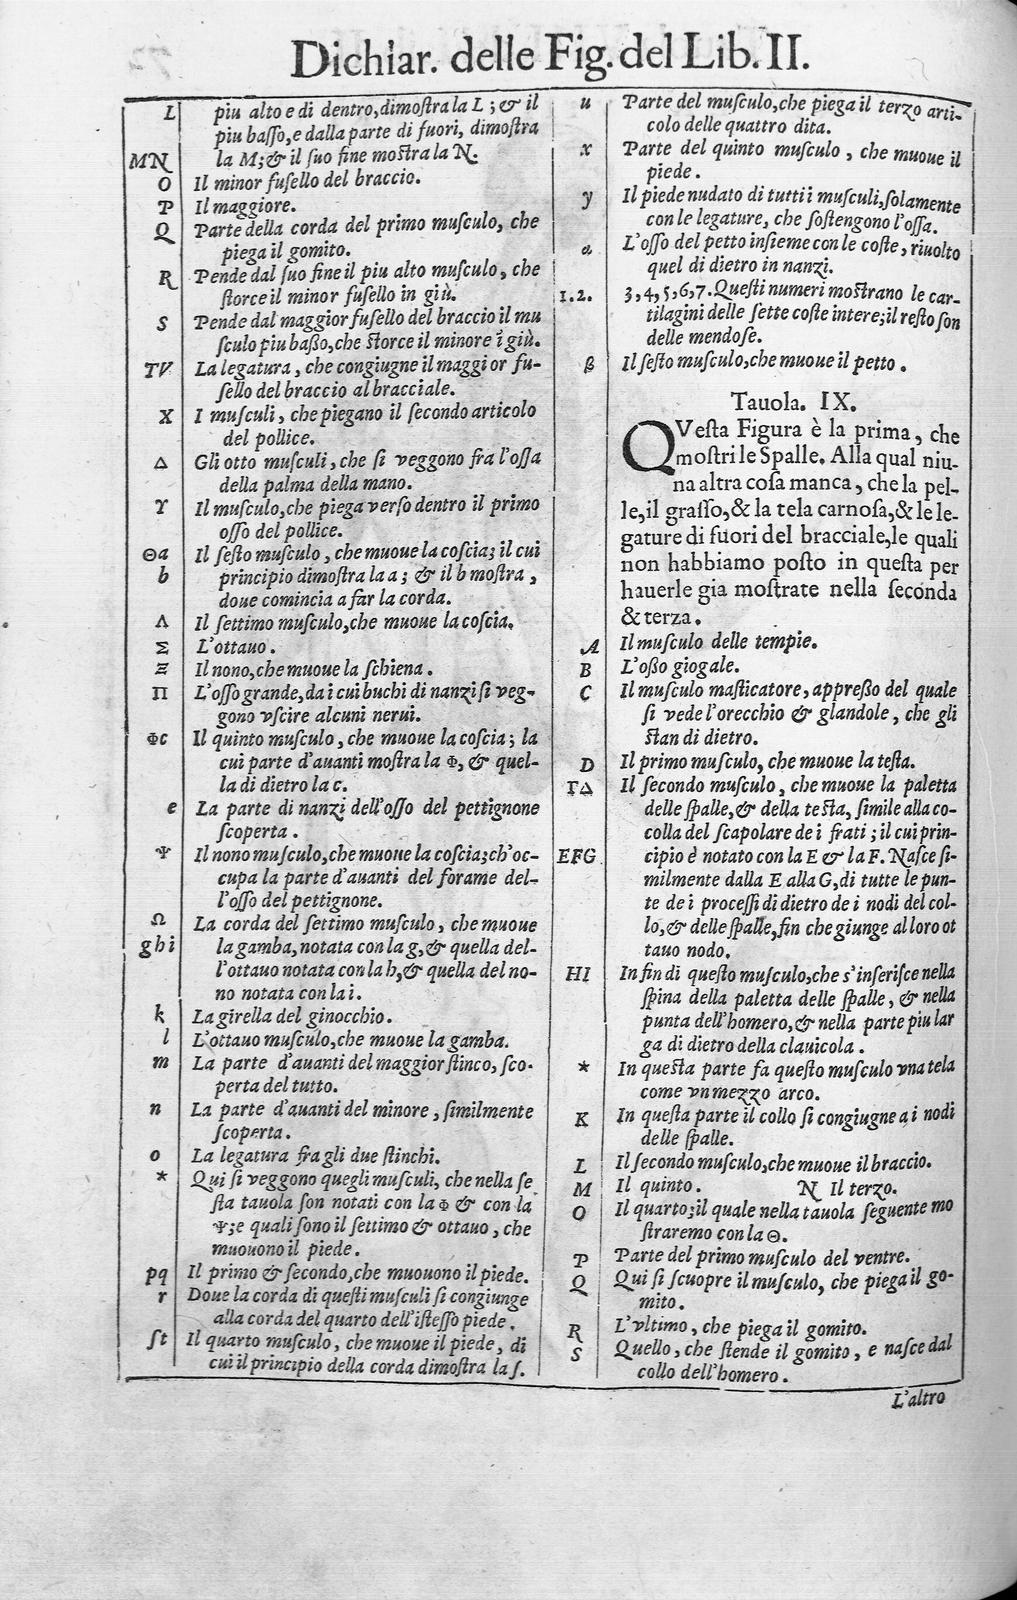 Dichiar. delle Fig. del Lib. II.
L piu alto e di dentro, dimoſtra la L; & il
piu baſſo, e dalla parte di fuori, dimoſtra
MN la M; & il ſuo fine moſtra la N.
O Il minor fuſello del braccio.
P Il maggiore.
Q Parte della corda del primo muſculo, che
piega il gomito.
R Pende dal ſuo fine il piu alto muſculo, che
ſtorce il minor fuſello in giù.
S Pende dal maggior fuſello del braccio il mu
ſculo piu baßo, che ſtorce il minore ĩ giù.
TV La legatura, che congiugne il maggior fu-
ſello del braccio al bracciale.
X I muſculi, che piegano il ſecondo articolo
del pollice.
Δ Gli otto muſculi, che ſi veggono fra l'oſſa
della palma della mano.
Υ Il muſculo, che piega verſo dentro il primo
oſſo del pollice.
Θa Il ſeſto muſculo, che muoue la coſcia; il cui
b principio dimoſtra la a; & il b moſtra,
doue comincia a far la corda.
Λ Il ſettimo muſculo, che muoue la coſcia.
Σ L'ottauo.
Ξ Il nono, che muoue la ſchiena.
Π L'oſſo grande, da i cui buchi di nanzi ſi veg-
gono vſcire alcuni nerui.
Φc Il quinto muſculo, che muoue la coſcia; la
cui parte d'auanti moſtra la Φ, & quel-
la di dietro la c.
e La parte di nanzi dell'oſſo del pettignone
ſcoperta.
Ψ Il nono muſculo, che muoue la coſcia; ch'oc-
cupa la parte d'auanti del forame del-
l'oſſo del pettignone.
Ω La corda del ſettimo muſculo, che muoue
ghi la gamba, notata con la g, & quella del-
l'ottauo notata con la h, & quella del no-
no notata con la i.
k La girella del ginocchio.
l L'ottauo muſculo, che muoue la gamba.
m La parte d'auanti del maggior ſtinco, ſco-
perta del tutto.
n La parte d'auanti del minore, ſimilmente
ſcoperta.
o La legatura fra gli due ſtinchi.
* Qui ſi veggono quegli muſculi, che nella ſe
ſta tauola ſon notati con la Φ & con la
Ψ; e quali ſono il ſettimo & ottauo, che
muouono il piede.
pq Il primo & ſecondo, che muouono il piede.
r Doue la corda di queſti muſculi ſi congiunge
alla corda del quarto dell'iſteſſo piede.
ſt Il quarto muſculo, che muoue il piede, di
cui il principio della corda dimoſtra la ſ.
u Parte del muſculo, che piega il terzo arti-
colo delle quattro dita.
x Parte del quinto muſculo, che muoue il
piede.
y Il piede nudato di tutti i muſculi, ſolamente
con le legature, che ſoſtengono l'oſſa.
α L'oſſo del petto inſieme con le coſte, riuolto
quel di dietro in nanzi.
1.2. 3,4,5,6,7. Queſti numeri moſtrano le car-
tilagini delle ſette coſte intere; il reſto ſon
delle mendoſe.
β Il ſeſto muſculo, che muoue il petto.
Tauola. IX.
QVeſta Figura è la prima, che
moſtri le Spalle. Alla qual niu-
na altra coſa manca, che la pel-
le, il graſſo, & la tela carnoſa, & le le-
gature di fuori del bracciale, le quali
non habbiamo poſto in queſta per
hauerle gia moſtrate nella ſeconda
& terza.
A Il muſculo delle tempie.
B L'oßo giogale.
C Il muſculo maſticatore, appreßo del quale
ſi vede l'orecchio & glandole, che gli
ſtan di dietro.
D Il primo muſculo, che muoue la teſta.
ΓΔ Il ſecondo muſculo, che muoue la paletta
delle ſpalle, & della teſta, ſimile alla co-
colla del ſcapolare de i frati; il cui prin-
EFG cipio è notato con la E & la F. Naſce ſi-
milmente dalla E alla G, di tutte le pun-
te de i proceſſi di dietro de i nodi del col-
lo, & delle ſpalle, fin che giunge al loro ot
tauo nodo.
HI In fin di queſto muſculo, che s'inſeriſce nella
ſpina della paletta delle ſpalle, & nella
punta dell'homero, & nella parte piu lar
ga di dietro della clauicola.
* In queſta parte fa queſto muſculo vna tela
come vn mezzo arco.
K In queſta parte il collo ſi congiugne a i nodi
delle ſpalle.
L Il ſecondo muſculo, che muoue il braccio.
M Il quinto. N Il terzo.
O Il quarto; il quale nella tauola ſeguente mo
ſtraremo con la Θ.
P Parte del primo muſculo del ventre.
Q Qui ſi ſcuopre il muſculo, che piega il go-
mito.
R L'vltimo, che piega il gomito.
S Quello, che ſtende il gomito, e naſce dal
collo dell'homero.
L'altro